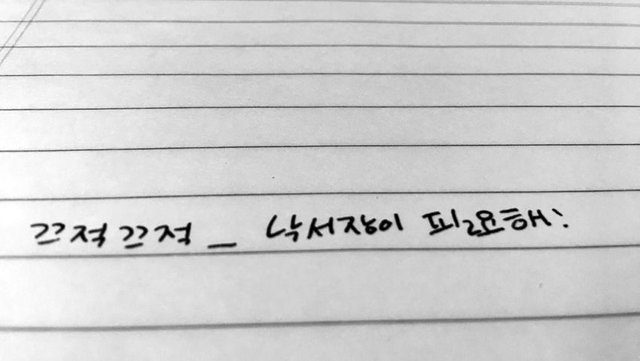 끄적끄적 _ 낙서장이 필요해!